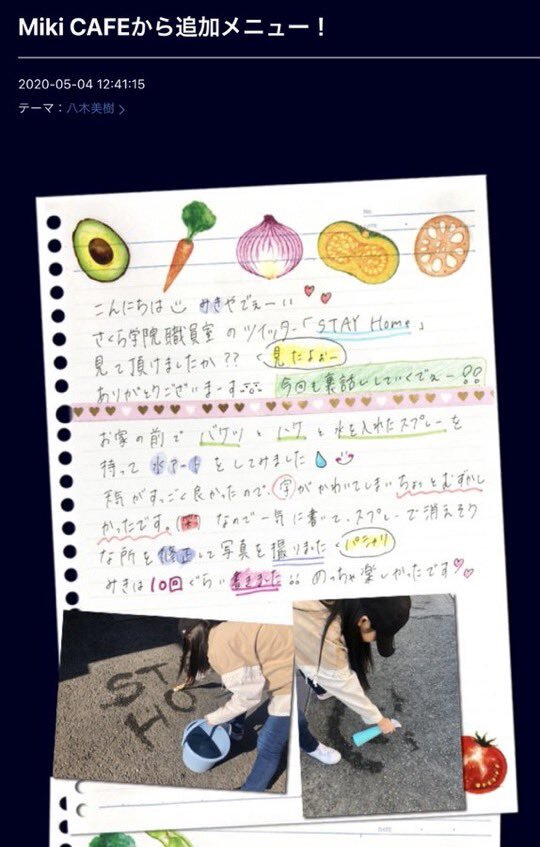 Miki CAFEから追加メニュー！
2020-05-04 12:41:15
テーマ：八木美樹 >
No.
DATE
こんにちは みきやでぇー!!
さくら学院職員室 のツイッター「STAY Home」
見て頂けましたか?? < 見たよぉー
ありがとうございまーす 今回も裏話ししていくでぇー!!
お家の前で バケツ と ハケ と 水を入れたスプレー を
持って 水アート をしてみました
天気がすっごく良かったので、字がかわいてしまい ちょっとむずかし
かったです。 なので一気に書いて、スプレーで消えそう
な所を 修正 して写真を 撮りました < パシャリ
みきは 10回 ぐらい 書きました!! めっちゃ楽しかったです
ST
HO
DATE